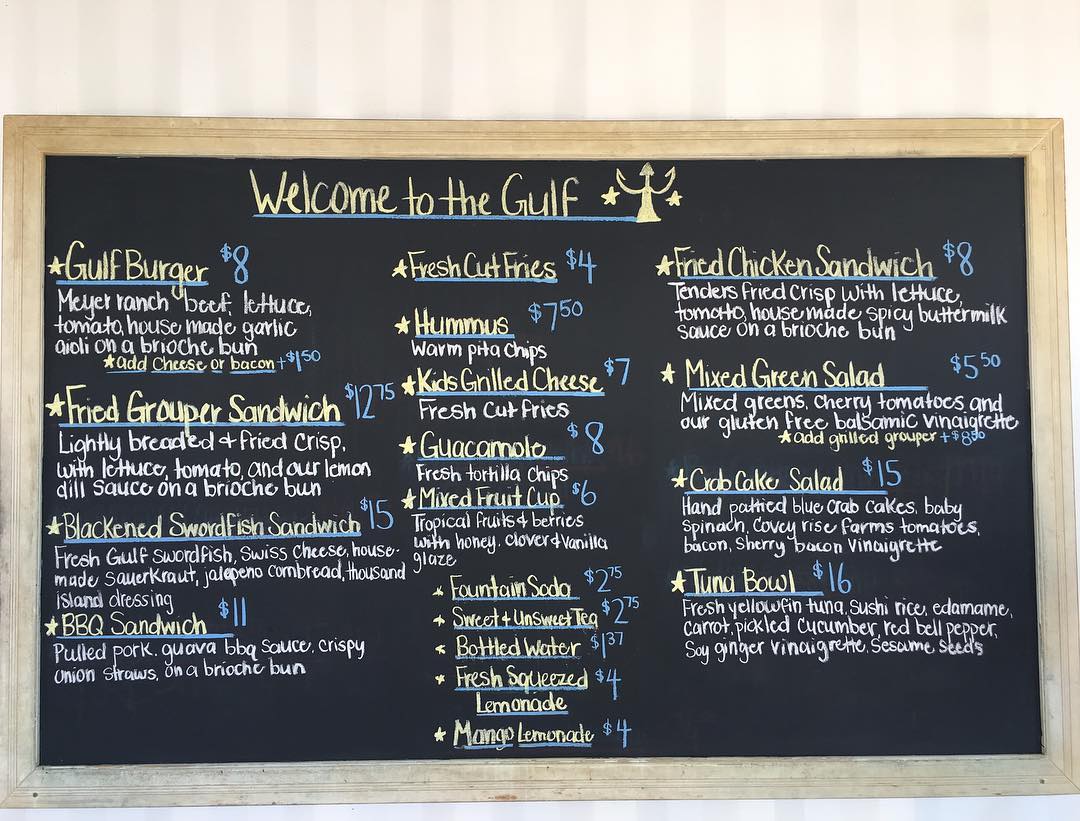 Welcome to the Gulf
Gulf Burger $8
Meyer ranch beef, lettuce,
tomato, house made garlic
aioli on a brioche bun
add Cheese or bacon +$1.50
Fried Grouper Sandwich $12.75
Lightly breaded + fried crisp,
with lettuce, tomato, and our lemon
dill sauce on a brioche bun
Blackened Swordfish Sandwich $15
Fresh Gulf swordfish, Swiss Cheese, house-
made Sauerkraut, jalapeno cornbread, thousand
island dressing
BBQ Sandwich $11
Pulled pork, guava bbq sauce, crispy
onion straws, on a brioche bun
Fresh Cut Fries $4
Hummus $7.50
Warm pita chips
Kids Grilled Cheese $7
Fresh cut fries
Guacamole $8
Fresh tortilla chips
Mixed Fruit Cup $6
Tropical fruits + berries
with honey, clover + vanilla
glaze
Fountain Soda $2.75
Sweet + Unsweet Tea $2.75
Bottled Water $1.37
Fresh Squeezed $4
Lemonade
Mango Lemonade $4
Fried Chicken Sandwich $8
Tenders fried crisp with lettuce,
tomato, house made spicy buttermilk
sauce on a brioche bun
Mixed Green Salad $5.50
Mixed greens, cherry tomatoes and
our gluten free balsamic vinaigrette
add grilled grouper +$8.50
Crab Cake Salad $15
Hand pattied blue crab cakes, baby
Spinach, Covey rise farms tomatoes,
bacon, Sherry bacon vinaigrette
Tuna Bowl $16
Fresh yellowfin tuna, Sushi rice, edamame,
carrot, pickled cucumber, red bell pepper,
Soy ginger vinaigrette, Sesame Seeds